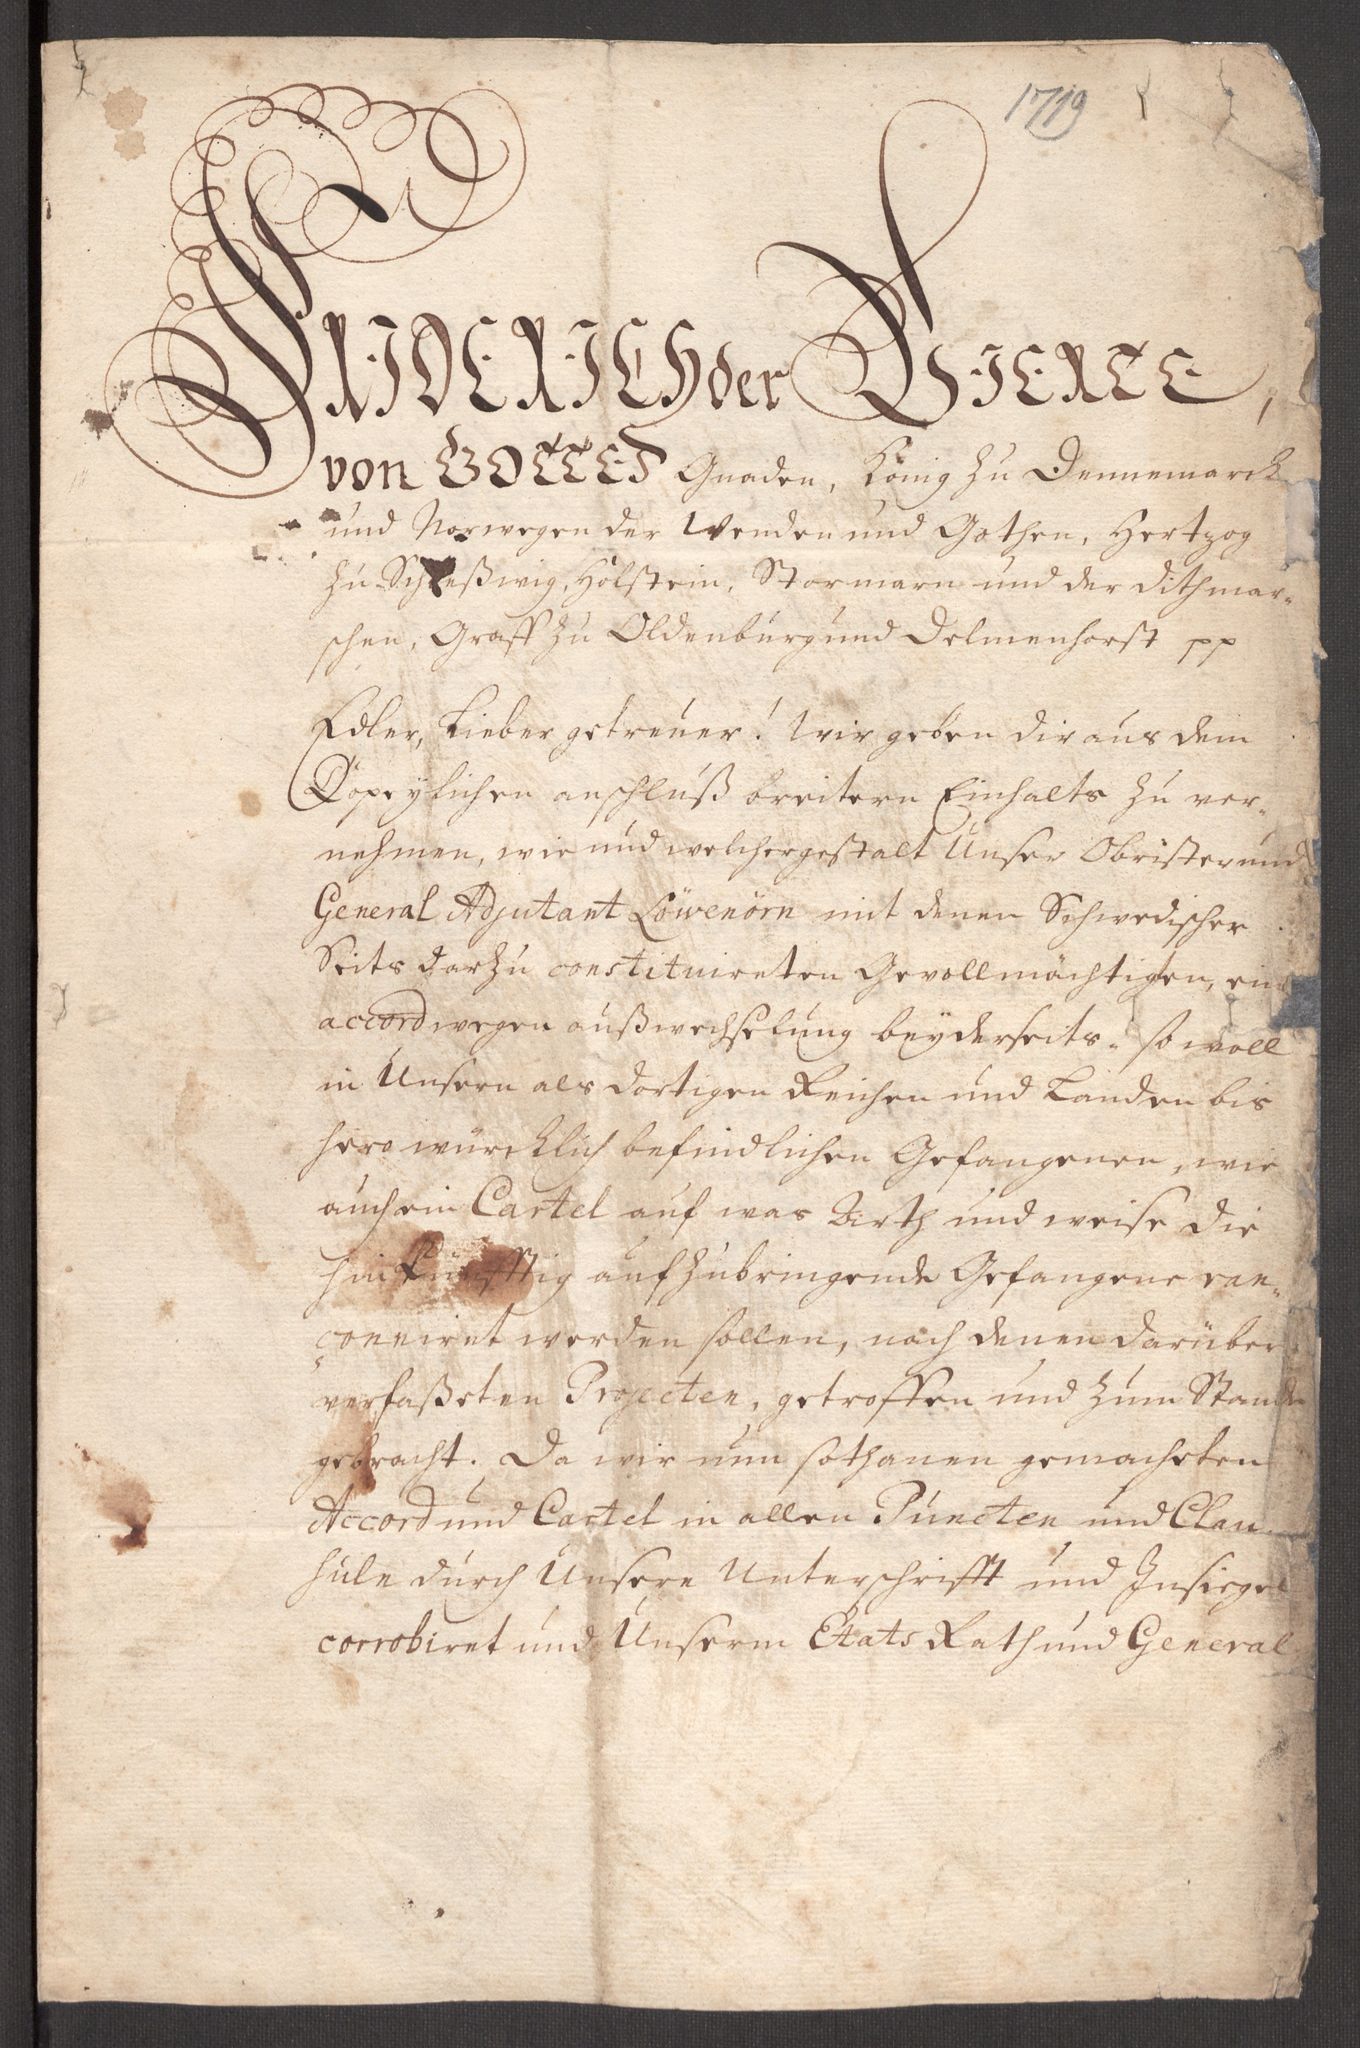 1719
FRIDERICH der VIERTE,
von GOTTES Gnaden, König zu Dennemarck
und Norwegen der Wenden und Gothen, Hertzog
zu Schleßwig, Holstein, Stormarn und der Dithmar-
schen, Graff zu Oldenburg und Delmenhorst pp
Edler, Lieber getreuer! Wir geben dir aus dem
Copeylichen anschluß breitern Einhalts zu ver-
nehmen, wie und welchergestalt Unser Obrister und
General Adjutant Löwenörn mit denen Schwedischer
Seits darzu constituireten Gevollmächtigen, ein
accord wegen außwechselung beyderseits so woll
in Unsern als dortigen Reichen und Landen bis
hero würcklich befindlichen Gefangenen, wie
auch ein Cartel auf was Arth und weise die
hinkünfftig aufzubringende Gefangene ran-
çonniret werden sollen, nach denen darüber
verfaßeten Projecten, getroffen und zum Stande
gebracht. Da wir nun sothanen gemacheten
Accord und Cartel in allen Puncten und Clau-
sule durch Unsere Unterschrifft und Insiegel
corrobiret und Unserm Etats Rath und General